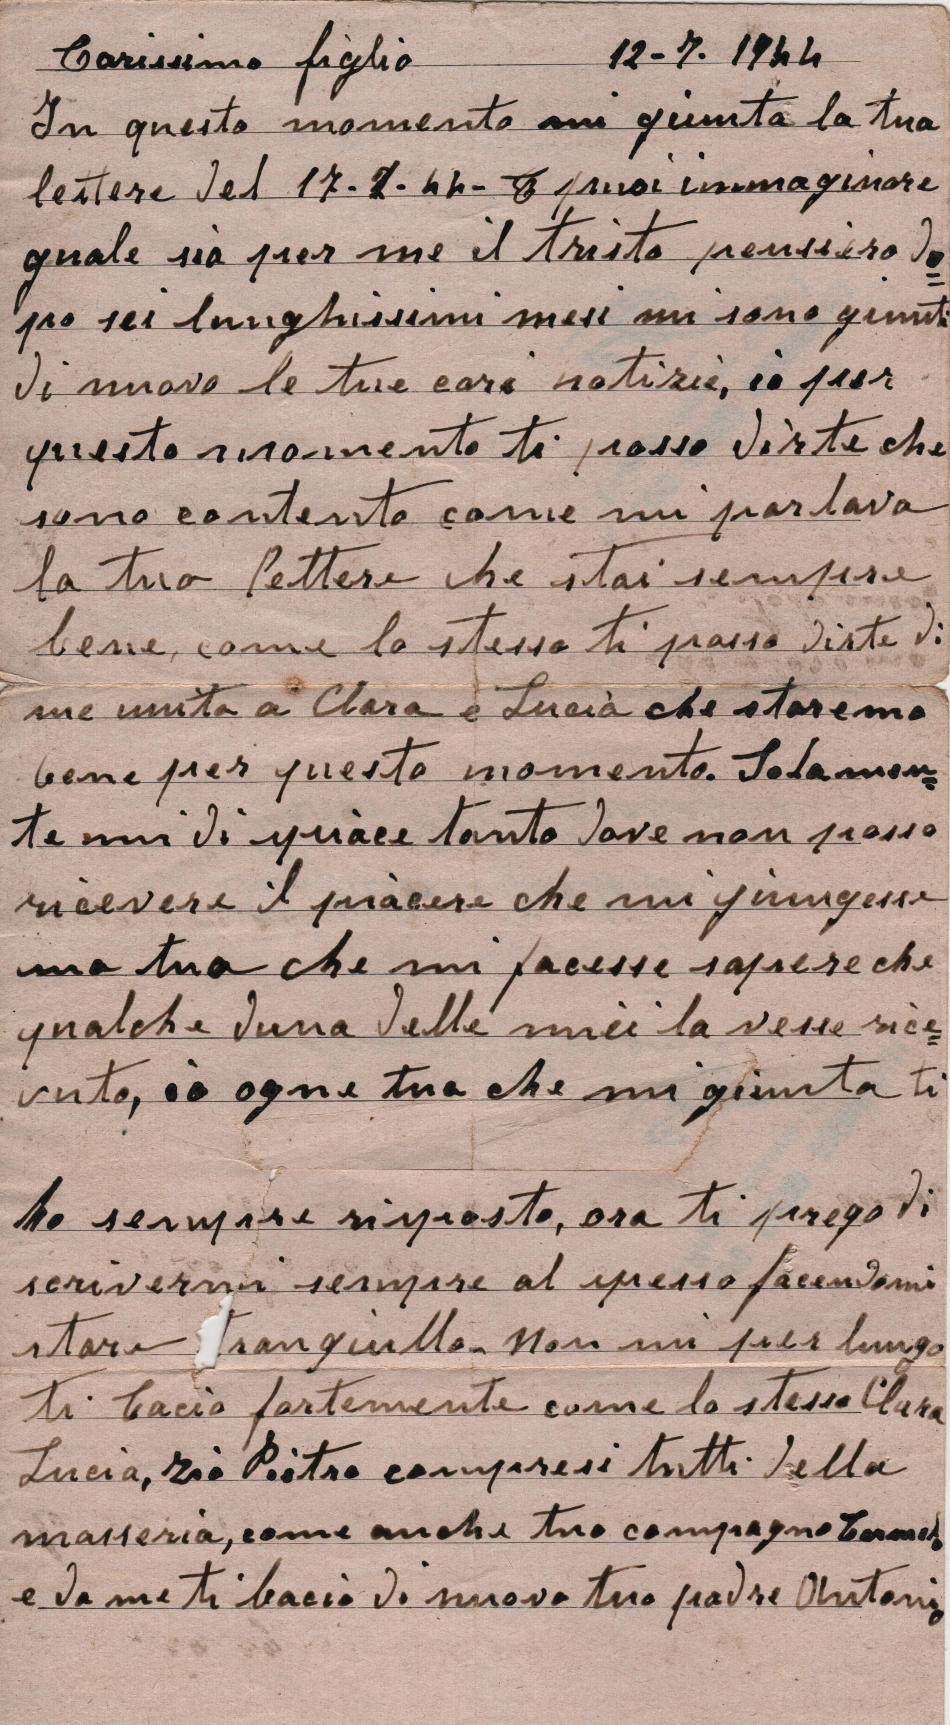 Carissimo figlio 12-7. 1944
In questo momento mi giunta la tua
lettere del 17-2-44- E puoi immaginare
quale sia per me il tristo pensiero do=
po sei lunghissimi mesi mi sono giunti
di nuovo le tue cari notizie, io per
questo momento ti posso dirte che
sono contento come mi parlava
la tua lettere che stai sempre
bene, come lo stesso ti posso dirte di
me unita a Clara e Lucia che staremo
bene per questo momento. Solamen=
te mi di spiace tanto dove non posso
ricevere il piacere che mi giungesse
una tua che mi facesse sapere che
qualche duna delle miei la vesse rice=
vuto, io ogne tua che mi giunta ti
ho sempre risposto, ora ti prego di
scrivermi sempre al spesso facendomi
stare tranguillo. Non mi per lungo
ti bacio fortemente come lo stesso Clara
Lucia, zio Pietro compresi tutti della
masseria, come anche tuo compagno
e da me ti bacio di nuovo tuo padre Antonio